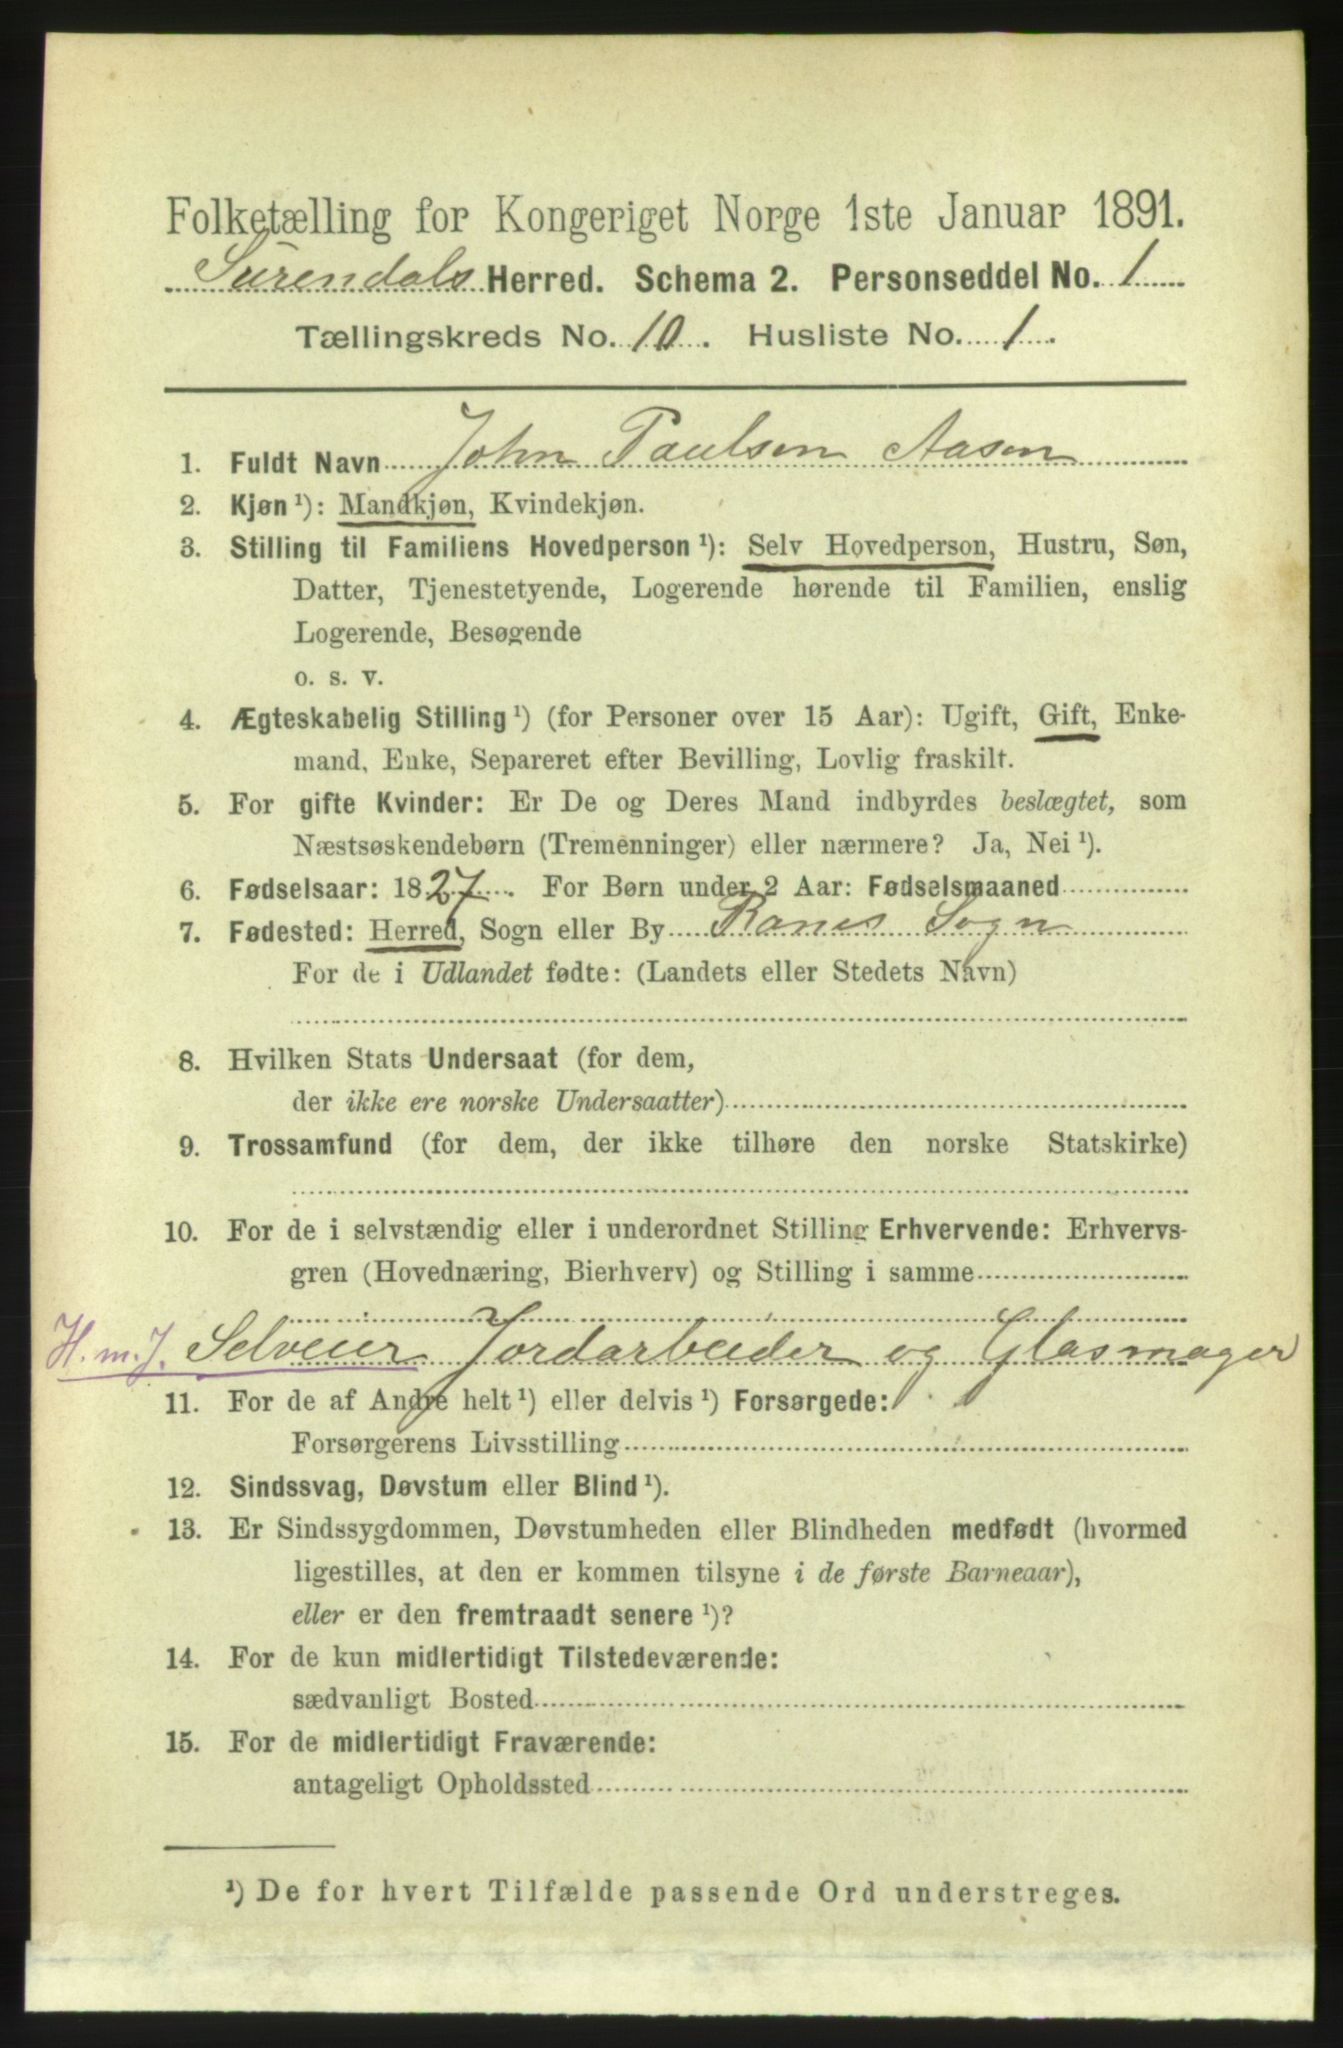 Folketælling for Kongeriget Norge 1ste Januar 1891.
Surendals Herred. Schema 2. Personseddel No. 1
Tællingskreds No. 10. Husliste No. 1.
1. Fuldt Navn John Paulsen Aasen
2. Kjøn ¹): Mandkjøn, Kvindekjøn.
3. Stilling til Familiens Hovedperson ¹): Selv Hovedperson, Hustru, Søn,
Datter, Tjenestetyende, Logerende hørende til Familien, enslig
Logerende, Besøgende
o. s. v.
4. Ægteskabelig Stilling ¹) (for Personer over 15 Aar): Ugift, Gift, Enke-
mand, Enke, Separeret efter Bevilling, Lovlig fraskilt.
5. For gifte Kvinder: Er De og Deres Mand indbyrdes beslægtet, som
Næstsøskendebørn (Tremenninger) eller nærmere? Ja, Nei ¹).
6. Fødselsaar: 1827. For Børn under 2 Aar: Fødselsmaaned
7. Fødested: Herred, Sogn eller By Ranes Sogn
For de i Udlandet fødte: (Landets eller Stedets Navn)
8. Hvilken Stats Undersaat (for dem,
der ikke ere norske Undersaatter)
9. Trossamfund (for dem, der ikke tilhøre den norske Statskirke)
10. For de i selvstændig eller i underordnet Stilling Erhvervende: Erhvervs-
gren (Hovednæring, Bierhverv) og Stilling i samme
H. m. J. Selveier Jordarbeider og Glasmager
11. For de af Andre helt ¹) eller delvis ¹) Forsørgede:
Forsørgerens Livsstilling
12. Sindssvag, Døvstum eller Blind ¹).
13. Er Sindssygdommen, Døvstumheden eller Blindheden medfødt (hvormed
ligestilles, at den er kommen tilsyne i de første Barneaar),
eller er den fremtraadt senere ¹)?
14. For de kun midlertidigt Tilstedeværende:
sædvanligt Bosted
15. For de midlertidigt Fraværende:
antageligt Opholdssted
¹) De for hvert Tilfælde passende Ord understreges.